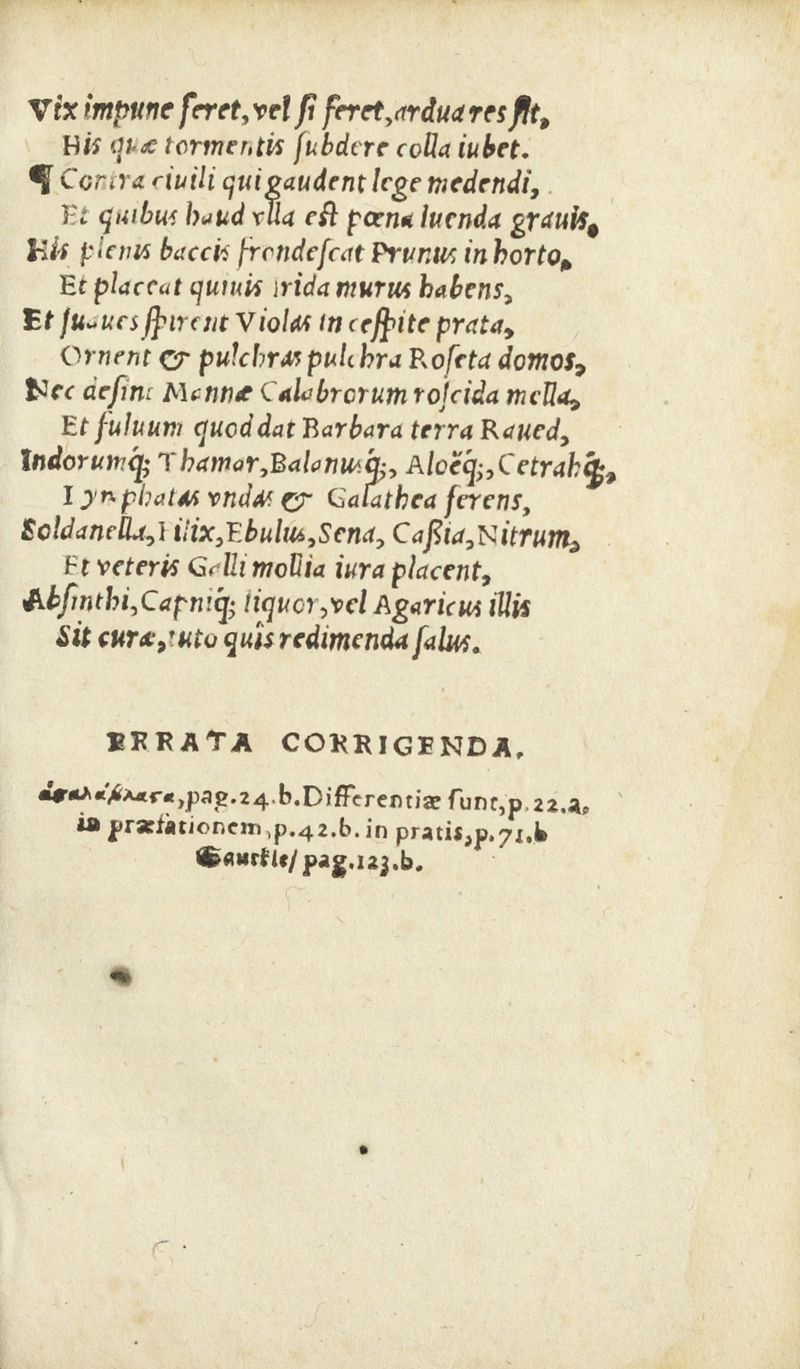 Vix impune feret, vel ſi feret, ardua res fit,
His quæ tormentis ſubdere colla iubet.
¶ Contra ciuili qui gaudent lege medendi,
Et quibus haud vlla eſt pœna luenda grauis,
His plenus baccis frondeſcat Prunus in horto,
Et placeat quiuis irida murus habens,
Et ſuaues ſpirent Violas in ceſpite prata,
Ornent & pulchras pulchra Roſeta domos,
Nec deſint Mannæ Calabrorum roſcida mella,
Et fuluum quod dat Barbara terra Raued,
Indorumq; Thamar, Balanusq;, Aloëq;, Cetrahq;,
Lymphatas vndas & Galathea ferens,
Soldanella, Filix, Ebulus, Sena, Caßia, Nitrum,
Et veteris Galli mollia iura placent,
Abſinthi, Capniq; liquor, vel Agaricus illis
Sit curæ, tuto quîs redimenda ſalus.
ERRATA CORRIGENDA.
pag. 24. b. Differentiæ ſunt, p. 22. a.
in præfationem, p. 42. b. in pratis, p. 71. b
pag. 123. b.